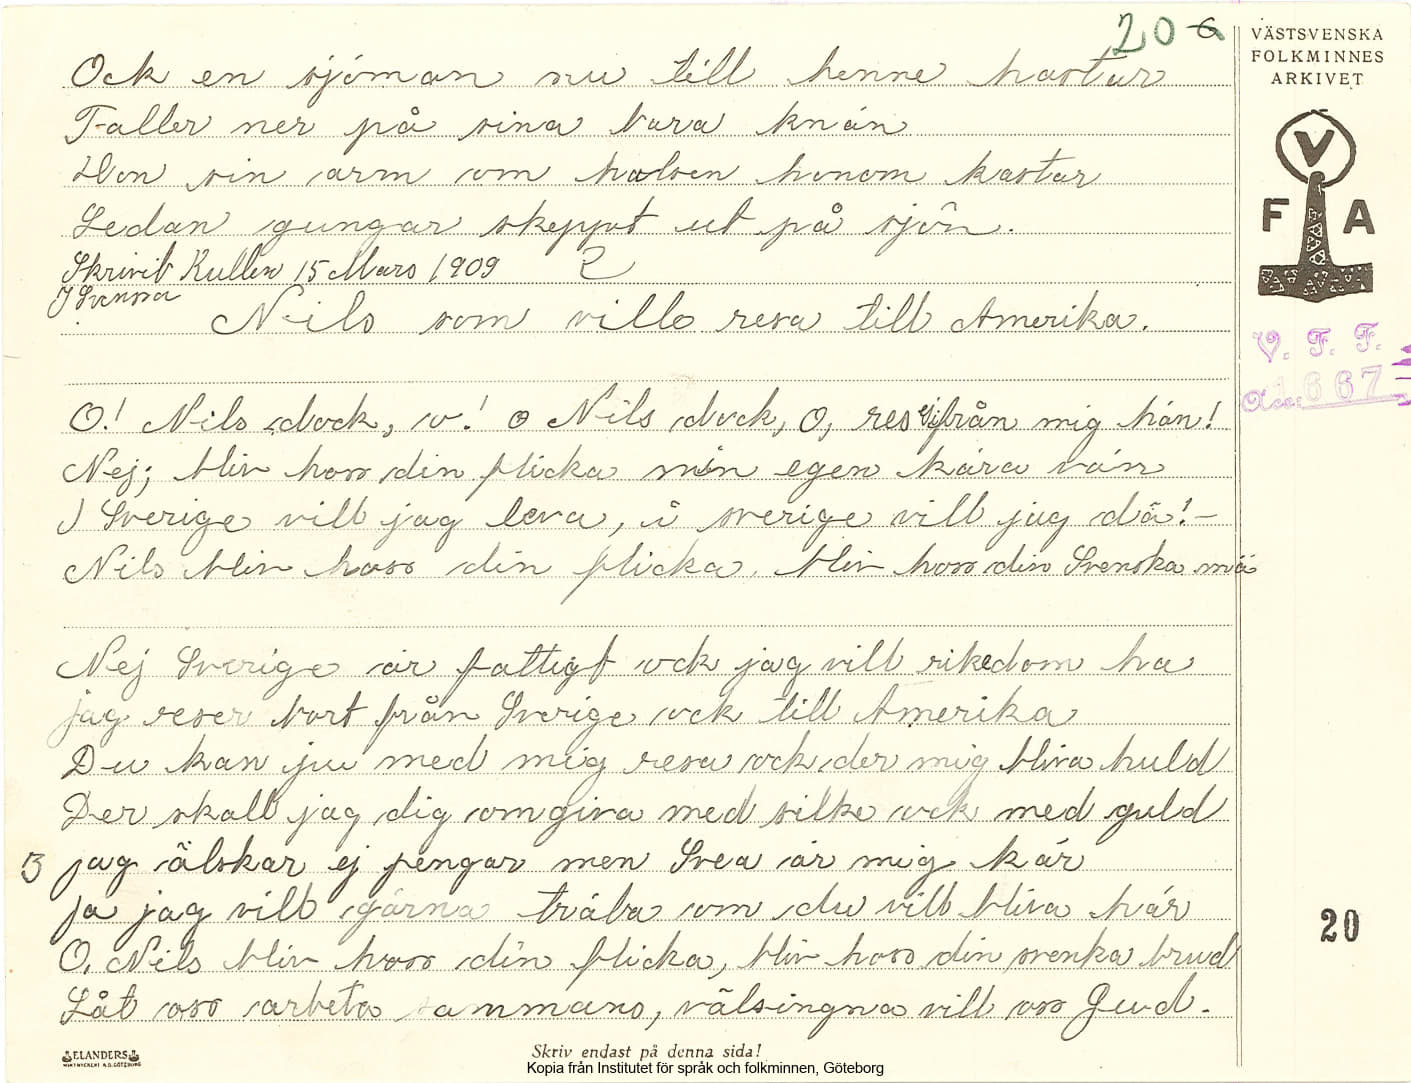 20 a
Ock en sjöman nu till henne hastar
Faller ner på sina bara knän
Hon sin arm om halsen honom kastar
Sedan gungar skeppet ut på sjön.
Skrivit Kullen 15 Mars 1909
J Svensson
Nils som ville resa till Amerika.
O! Nils dock, o! o Nils dock, O, res ej från mig hän!
Nej; bliv hoss din flicka min egen kära vän
I Sverige vill jag leva, i sverige vill jag dö! –
Nils bliv hoss din flicka, bliv hoss din Svenska mö
Nej Sverige är fattigt ock jag vill rikedom ha
jag reser bort från Sverige ock till Amerika
Du kan ju med mig resa ock der mig bliva huld
Der skall jag dig omgiva med silke ock med guld
3 jag älskar ej pengar men Svea är mig kär
ja jag vill gärna träla om du vill bliva här
O, Nils bliv hoss din flicka, bliv hoss din svenka brud
Låt oss arbeta sammans, välsingna vill oss Gud.
VÄSTSVENSKA
FOLKMINNES
ARKIVET
V
F A
V. F. F.
Acc: 1667
20
ELANDERS
Skriv endast på denna sida!
Kopia från Institutet för språk och folkminnen, Göteborg